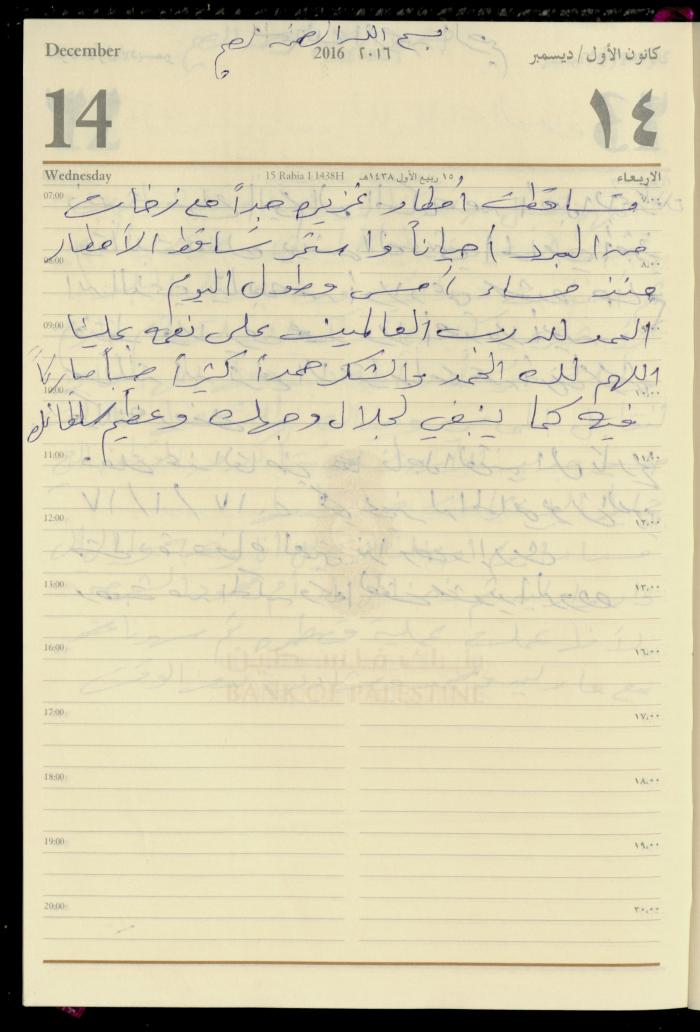 بسم الله الرحمن الرحيم
December 2016 ٢٠١٦ كانون الأول / ديسمبر
14 ١٤
Wednesday 15 Rabia I 1438H ١٥ ربيع الأول ١٤٣٨هـ الاربعاء
07:00 ٧:٠٠
وتساقطت أمطار غزيره جداً مع زخات
من البرد أحياناً واستمر تساقط الأمطار
08:00 ٨:٠٠
منذ مساء أمس وطول اليوم
09:00
الحمد لله رب العالمين على نعمه علينا
اللهم لك الحمد والشكر حمداً كثيراً طيباً مباركاً
10:00 ١٠:٠٠
فيه كما ينبغي لجلال وجهك وعظيم سلطانك
11:00 ١١:٠٠
12:00 ١٢:٠٠
13:00 ١٣:٠٠
16:00 ١٦:٠٠
BANK OF PALESTINE
17:00 ١٧:٠٠
18:00 ١٨:٠٠
19:00 ١٩:٠٠
20:00 ٢٠:٠٠